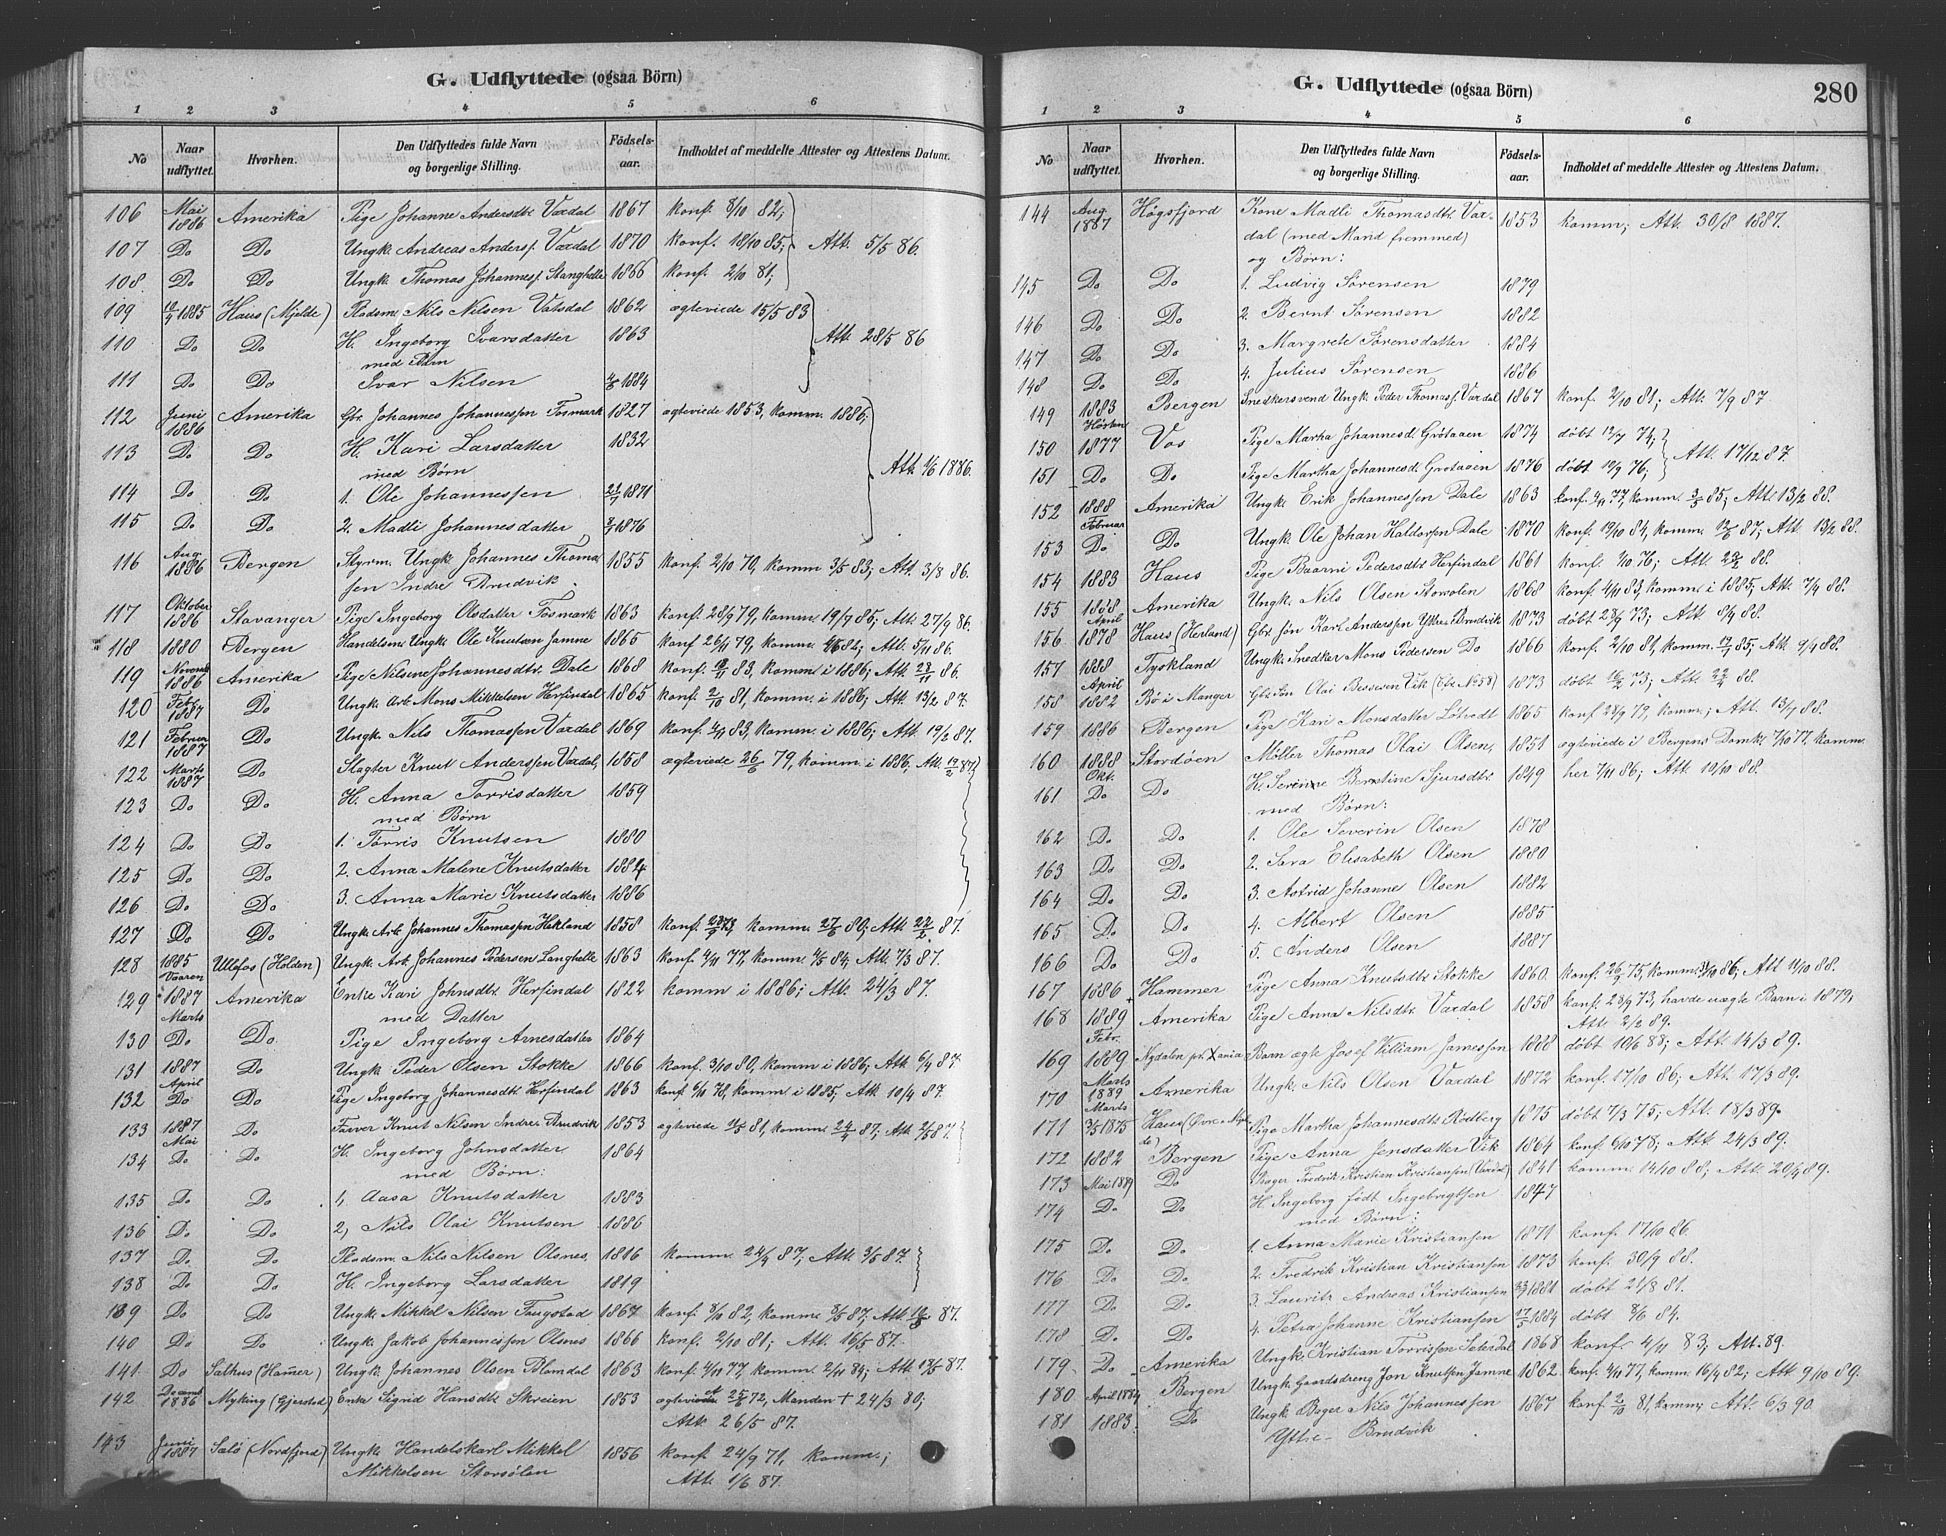 G. Udflyttede (ogsaa Börn)
1 2 3 4 5 6
No Naar udflyttet. Hvorhen. Den Udflyttedes fulde Navn og borgerlige Stilling. Födsels-aar. Indholdet af meddelte Attester og Attestens Datum.
106 Mai 1886 Amerika Pige Johanne Andersdtr. Vaxdal 1867 konf. 8/10 82;
107 Do Do Ungk. Andreas Andersf. Vaxdal 1870 konf. 18/10 85; Att. 5/5 86.
108. Do Do Ungk. Thomas Johannesf. Stanghelle 1866 konf. 2/10 81;
109 1885 Haus (Mjelde) Pladsm. Nils Nilsen Vatsdal 1862 ægteviede 15/5 83
110 Do Do H. Ingeborg Ivarsdatter 1863 Att. 28/5 86
med Barn
111 Do Do Ivar Nilsen 1884
112 Juni 1886 Amerika Gbr. Johannes Johannessen Fosmark 1827 ægteviede 1853, komm. 1886;
113 Do Do H. Kari Larsdatter 1832
med Børn Att. 1/6 1886.
114 Do Do 1. Ole Johannessen 1871
115 Do Do 2. Madli Johannesdatter 1876
116 Aug. 1886 Bergen Styrm. Ungk. Johannes Thomas 1855 konf. 2/10 70, komm 3/5 83; Att. 3/8 86.
sen Indre Brudvik.
117 Oktober 1886 Stavanger Pige Ingeborg Olsdatter Fosmark 1863 konf. 28/9 79, komm. 19/9 86; Att. 27/9 86.
118 1880 Bergen Handelsm. Ungk. Ole Knutsen Jamne 1865 konf 26/11 79, komm. 4/6 82; Att. 5/11 86.
119 Novemb 1886 Amerika Pige Nilsine Johannesdtr. Dale 1868 konf. 83, komm. i 1886; Att. 86.
120 Febr. 1887 Do Ungk. Arb. Mons Mikkelsen Herfindal 1865 konf. 2/10 81, komm. i 1886; Att. 13/2 87.
121 Februar 1887 Do Ungk. Nils Thomassen Vaxdal 1869 konf. 4/11 83, komm. i 1886; Att. 19/2 87.
122 Marts 1887 Do Slagter Knut Andersen Vaxdal, 1858 ægteviede 26/6 79, komm i 1886, Att. 87
123 Do Do H. Anna Torrisdatter 1859
med Børn
124 Do Do 1. Torris Knutsen 1880
125 Do Do 2. Anna Malene Knutsdatter 1884
126 Do Do 3. Anna Marie Knutsdatter 1886
127 Do Do Ungk. Arb. Johannes Thomassen Hekland 1858 konf. 73, komm. 27/6 80; Att. 22/2 87.
128 1885 Vaaren Ulefos (Holden) Ungk. Arb. Johannes Pedersen Langhelle 1863 konf. 4/11 77, komm. 4/5 84; Att. 7/3 87.
129 1887 Marts Amerika Enke Kari Johnsdtr. Herfindal 1822 komm i 1886; Att. 24/3 87.
med Datter
130 Do Do. Pige Ingeborg Arnesdatter 1864
131 1887 April Do Ungk. Peder Olsen Stokke 1866 konf. 3/10 80, komm i 1886; Att. 6/4 87
132 Do Do Pige Ingeborg Johannesdtr. Herfindal 1863 konf. 6/10 78, komm i 1885; Att. 10/4 87.
133 1887 Mai Do Farver Knut Nilsen Indre Brudvik 1853 ægteviede 81, komm. 24/4 87; Att. 2/5 87.
134 Do Do H. Ingeborg Johnsdatter 1864
med Børn:
135 Do Do 1, Aasa Knutsdatter 1883
136 Do Do 2, Nils Olai Knutsen 1886
137 Do Do Pladsm. Nils Nilsen Olsnes, 1816 komm. 24/4 87; Att. 3/5 87.
138 Do Do H. Ingeborg Larsdatter 1819
139 Do Do Ungk. Mikkel Nilsen Fangstad 1867 konf. 8/10 82, komm. 8/5 87; Att. 87.
140 Do Do Ungk. Jakob Johannessen Olsnes 1866 konf. 2/10 81; Att. 16/5 87.
141 Do Salhus (Hammer) Ungk. Johannes Olsen Blomdal 1863 konf. 4/11 77, komm. 2/11 84; Att. 13/5 87.
142 Decemb 1886 Myking (Gjerstad) Enke Sigrid Hansdtr. Skreien 1853 ægteviede 25/6 72, Manden + 24/3 80;
Att. 26/5 87.
143 Juni 1887 Salö (Nordfjord) Ungk. Handelskarl Mikkel 1856 konf. 24/9 71, komm.;
Mikkelsen Storsölen Att. 1/6 87.
G. Udflyttede (ogsaa Börn) 280
1 2 3 4 5 6
No Naar udflyttet. Hvorhen. Den Udflyttedes fulde Navn og borgerlige Stilling. Födsels-aar. Indholdet af meddelte Attester og Attestens Datum.
144 Aug. 1887 Högsfjord Kone Madli Thomasdtr. Vax- 1853 komm; Att. 30/8 1887.
dal (med Mand fremmed)
og Børn:
145 Do Do 1. Ludvig Sørensen 1879
146 Do Do 2. Bernt Sørensen 1882
147 Do Do 3. Margrete Sørensdatter 1884
148 Do Do 4. Julius Sørensen 1886
149 1883 Høsten Bergen Snedkersvend Ungk. Peder Thomasf. Vaxdal 1867 konf. 2/10 81; Att. 7/9 87
150 1877 Vos Pige Marha Johannesd. Grötaaen 1874 döbt 12/7 74;
151 Do Do Pige Martha Johannesd. Grotaaen 1876 döbt 76, Att. 17/12 87.
152 1888 Februar Amerika Ungk. Erik Johannessen Dale 1863 konf. 77, komm. 3/5 85; Att. 13/2 88.
153 Do Do Ungk. Ole Johan Haldorsen Dale 1870 konf. 19/10 84, komm. 87; Att. 13/2 88.
154 1883 Haus Pige Baarni Pedersdtr. Herfindal 1861 konf. 76; Att. 88.
155 1888 April Amerika Ungk. Nils Olsen Storolen 1868 konf. 4/11 83, komm i 1885; Att. 7/4 88.
156 1878 Haus (Herland) Gbr. søn Karl Anderssen Ytre Brudvik 1873 döbt 28/9 73; Att. 8/4 88.
157 1888 April Tyskland Ungk. Snedker Mons Pedersen Do 1866 konf. 2/10 81, komm. 85; Att. 9/4 88.
158 1882 Bö i Manger Gbr. Søn Olai Bessesen Vik (cfr No 58) 1873 döbt 73; Att. 88.
159 1886 Bergen Pige Kari Monsdatter Løtvedt 1865 konf 28/9 79, komm.; Att. 13/7 88.
160 1888 Okt. Stordöen Möller Thomas Olai Olsen, 1851 ægteviede i Bergens Domk. 7/10 77. komm.
161 Do Do H. Serinne Berntine Sjursdtr. 1849 her 7/11 86; Att. 10/10 88.
med Børn:
162 Do Do 1. Ole Severin Olsen 1878
163 Do Do 2. Sara Elisabeth Olsen 1880
164 Do Do 3. Astrid Johanne Olsen 1882
165 Do Do 4. Albert Olsen 1885
166 Do Do 5. Anders Olsen 1887
167 1886 Hammer Pige Anna Knutsdtr. Stokke 1860. konf. 75, komm. 86; Att 11/10 88.
168 1889 Febr. Amerika Pige Anna Nilsdtr. Vaxdal 1858 konf. 28/9 73, havde uægte Barn i 1879;
Att. 2/2 89.
169 1889 Marts Nydalen pr. Xania Barn ægte Josef William Jamessen 1888 döbt 10/6 88; Att. 14/3 89.
170 1889 Marts Amerika Ungk. Nils Olsen Vaxdal 1872 konf. 17/10 86; Att. 17/3 89.
171 1875 Haus (Övre Mjelde) Pige Martha Johannesdtr. Rödberg 1875 döbt 7/3 75; Att. 18/3 89.
172 1882 Bergen Pige Anna Jensdatter Vik 1864 konf. 6/10 78; Att. 24/3 89.
173 Mai 1889 Do Bager Fredrik Kristian Kristiansen (Vaxdal) 1841 komm. 14/10 88; Att. 20/4 89.
174 Do Do H. Ingeborg født Ingebrigtsen 1847
med Børn:
175 Do Do 1. Anna Marie Kristiansen 1871 konf. 17/10 86.
176 Do Do 2. Fredrik Kristian Kristiansen 1873 konf. 30/9 88.
177 Do Do 3. Lauritz Andreas Kristiansen 1881 döbt 21/8 81.
178 Do Do 4. Petra Johanne Kristiansen 1884 döbt 8/6 84.
179 Do Amerika Ungk. Kristian Torrissen Seterdal 1868 konf. 4/11 83; Att. 89.
180 April 1884 Bergen Ungk. Gaardsdreng Jon Knutsen Jamne 1862 konf. 4/11 77, komm. 16/4 82; Att. 9/10 89.
181 1883 Do Ungk. Bager Nils Johannessen 1867 konf. 2/10 81, komm; Att. 6/3 90.
Yttre Brudvik